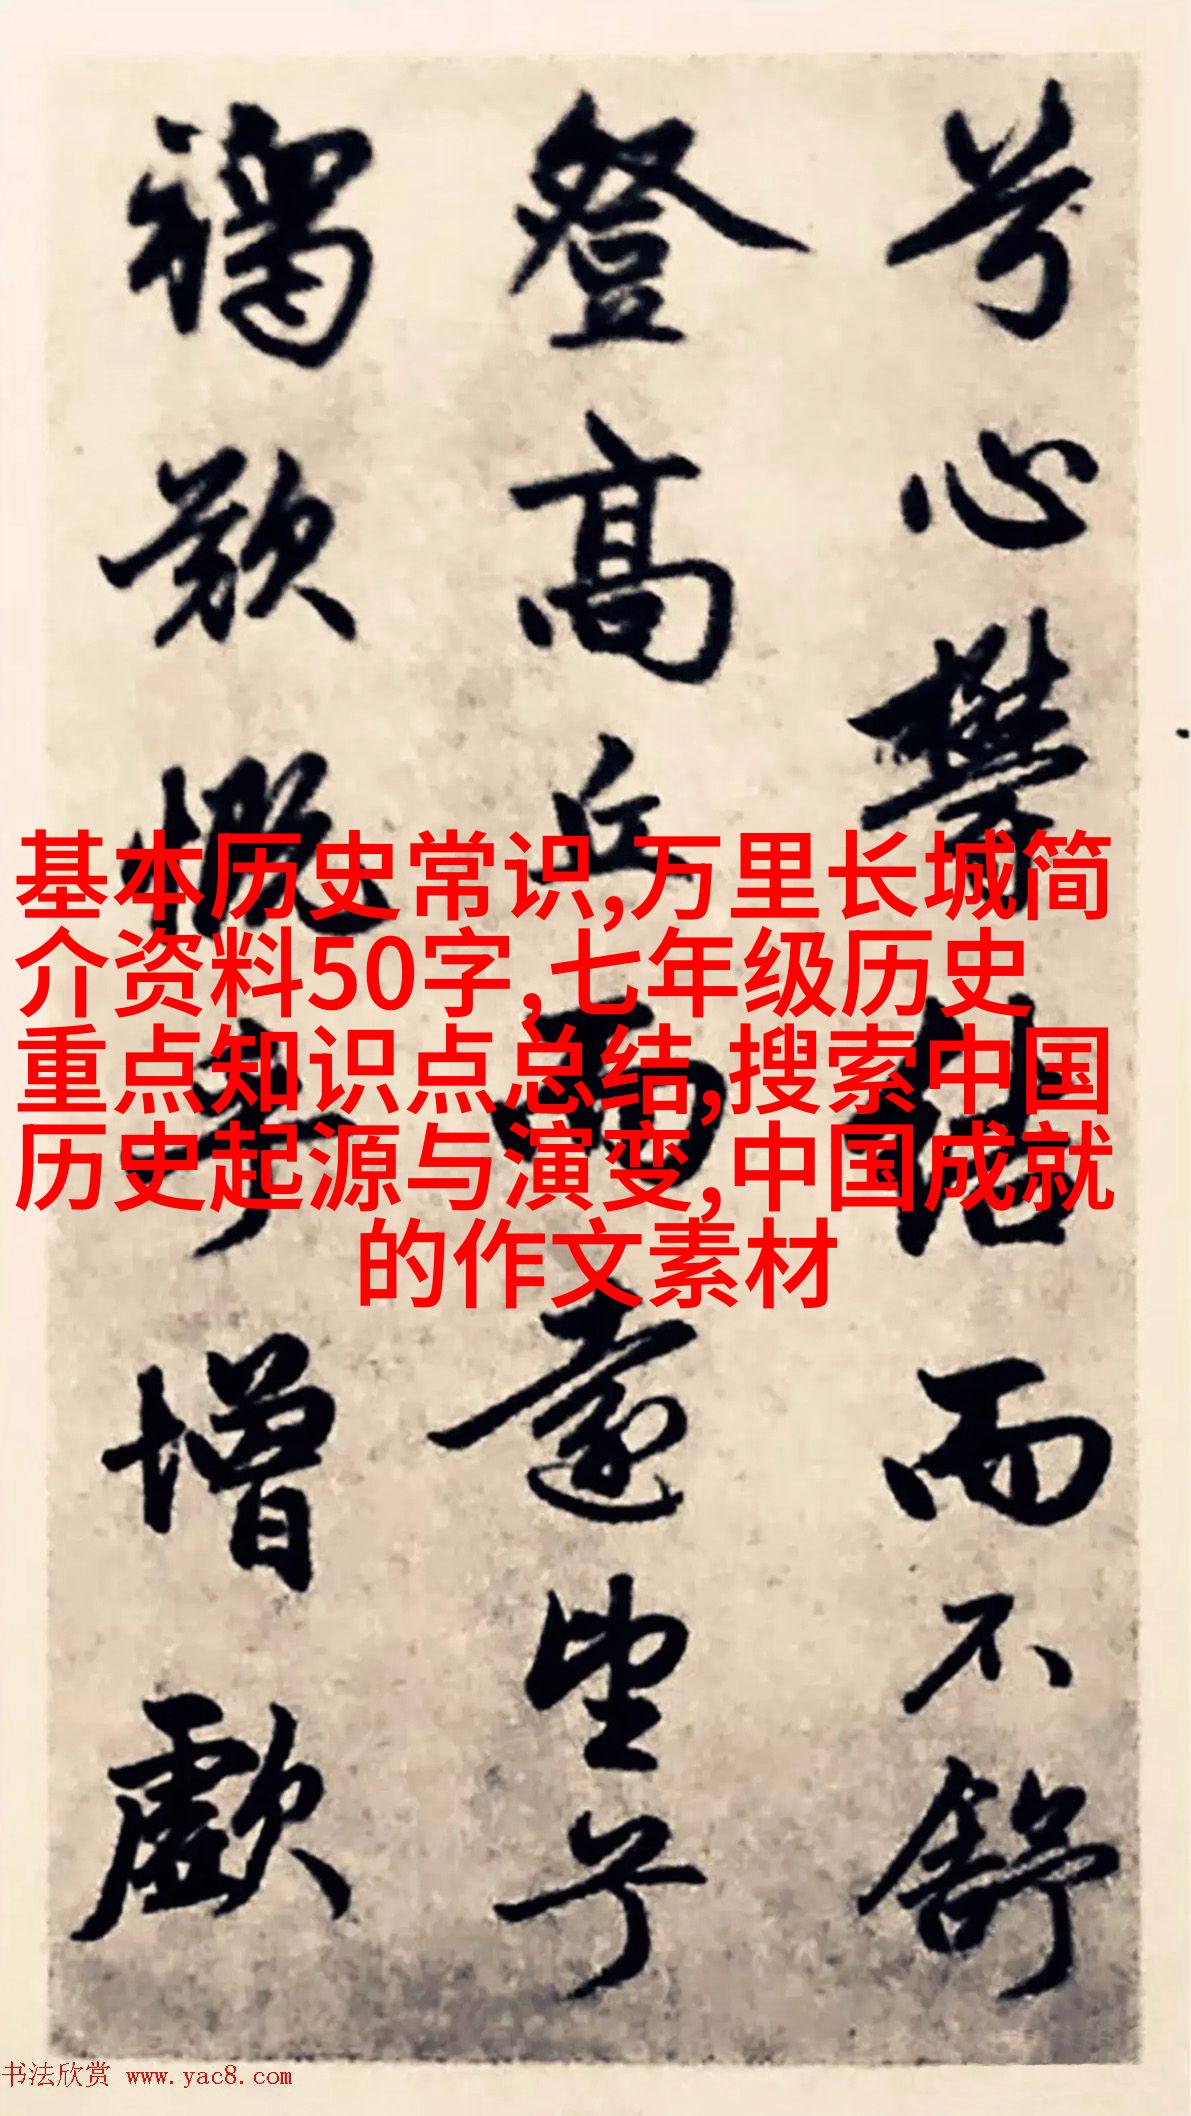 兮心鬱結而不舒
登高丘而遠望兮
歎慨增歔
基本历史常识,万里长城简
介资料50字,七年级历史
重点知识点总结,搜索中国
历史起源与演变,中国成就
的作文素材
书法欣赏 www.yac8.com